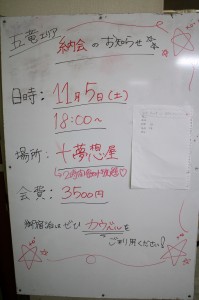 五竜エリア
納会のお知らせ
日時: 11月5日(土)
18:00~
場所: 十夢想屋
↳2時間飲み放題♡
会費: 3500円
ぜひ
ご利用ください!